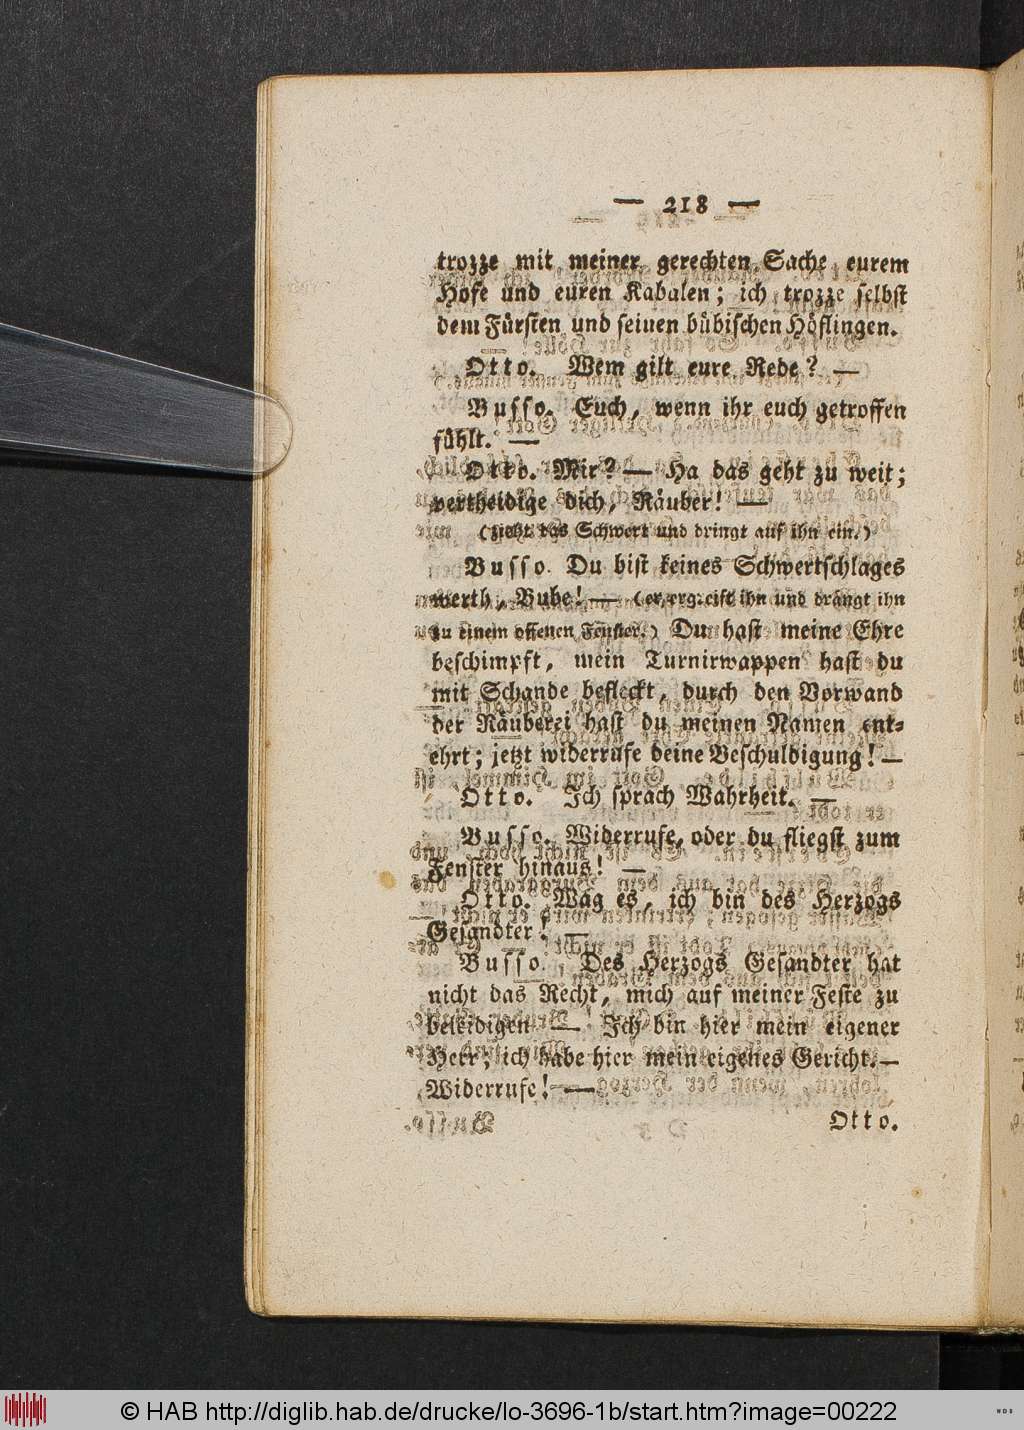 — 218 —
trozze mit meiner gerechten Sache eurem
Hofe und euren Kabalen; ich trozze selbst
dem Fürsten und seinen bübischen Höflingen.
Otto. Wem gilt eure Rede? —
Busso. Euch, wenn ihr euch getroffen
fühlt. —
Otto. Mir? — Ha das geht zu weit;
vertheidige dich, Räuber! —
(zieht das Schwert und dringt auf ihn ein.)
Busso. Du bist keines Schwertschlages
werth, Bube! — (er ergreift ihn und drängt ihn
zu einem offenen Fenster.) Du hast meine Ehre
beschimpft, mein Turnirwappen hast du
mit Schande befleckt, durch den Vorwand
der Räuberei hast du meinen Namen ent-
ehrt; jetzt widerrufe deine Beschuldigung! —
Otto. Ich sprach Wahrheit. —
Busso. Widerrufe, oder du fliegst zum
Fenster hinaus! —
Otto. Wag es, ich bin des Herzogs
Gesandter! —
Busso. Des Herzogs Gesandter hat
nicht das Recht, mich auf meiner Feste zu
beleidigen — Ich bin hier mein eigener
Herr, ich habe hier mein eigenes Gericht. —
Widerrufe! —
Otto.
© HAB http://diglib.hab.de/drucke/lo-3696-1b/start.htm?image=00222